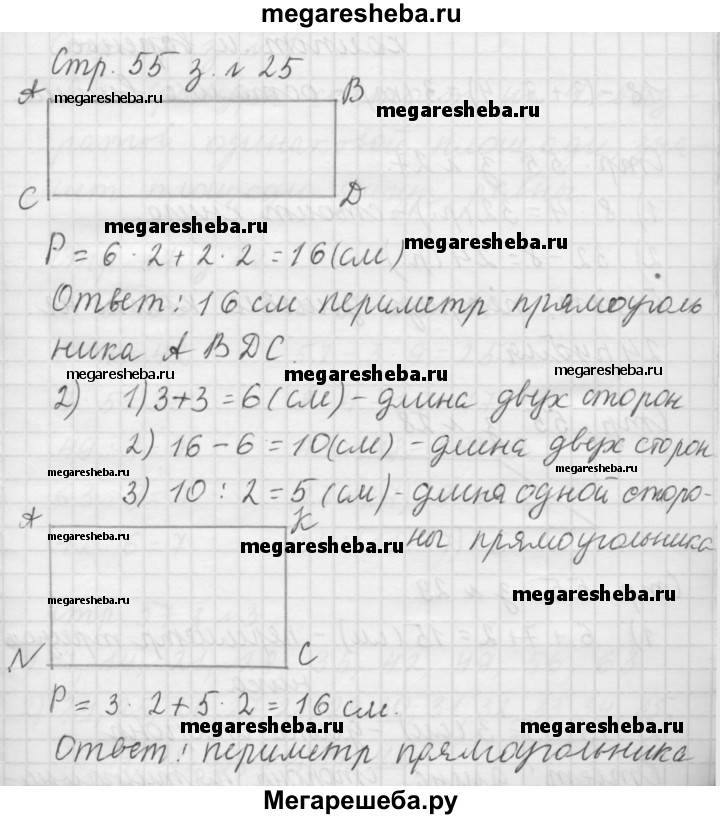 megaresheba.ru
Стр. 55 з. № 25
A B
megaresheba.ru
megaresheba.ru
C D
megaresheba.ru
P = 6 · 2 + 2 · 2 = 16 (см)
megaresheba.ru
Ответ: 16 см периметр прямоуголь
ника ABDC.
megaresheba.ru
megaresheba.ru
2) 1) 3+3 = 6 (см) - длина двух сторон
2) 16 - 6 = 10 (см) - длина двух сторон
megaresheba.ru
megaresheba.ru
3) 10 : 2 = 5 (см) - длина одной сторо-
ны прямоугольника
A K
megaresheba.ru
megaresheba.ru
megaresheba.ru
N C
P = 3 · 2 + 5 · 2 = 16 см.
megaresheba.ru
megaresheba.ru
Ответ: периметр прямоугольника
Мегарешеба.ру